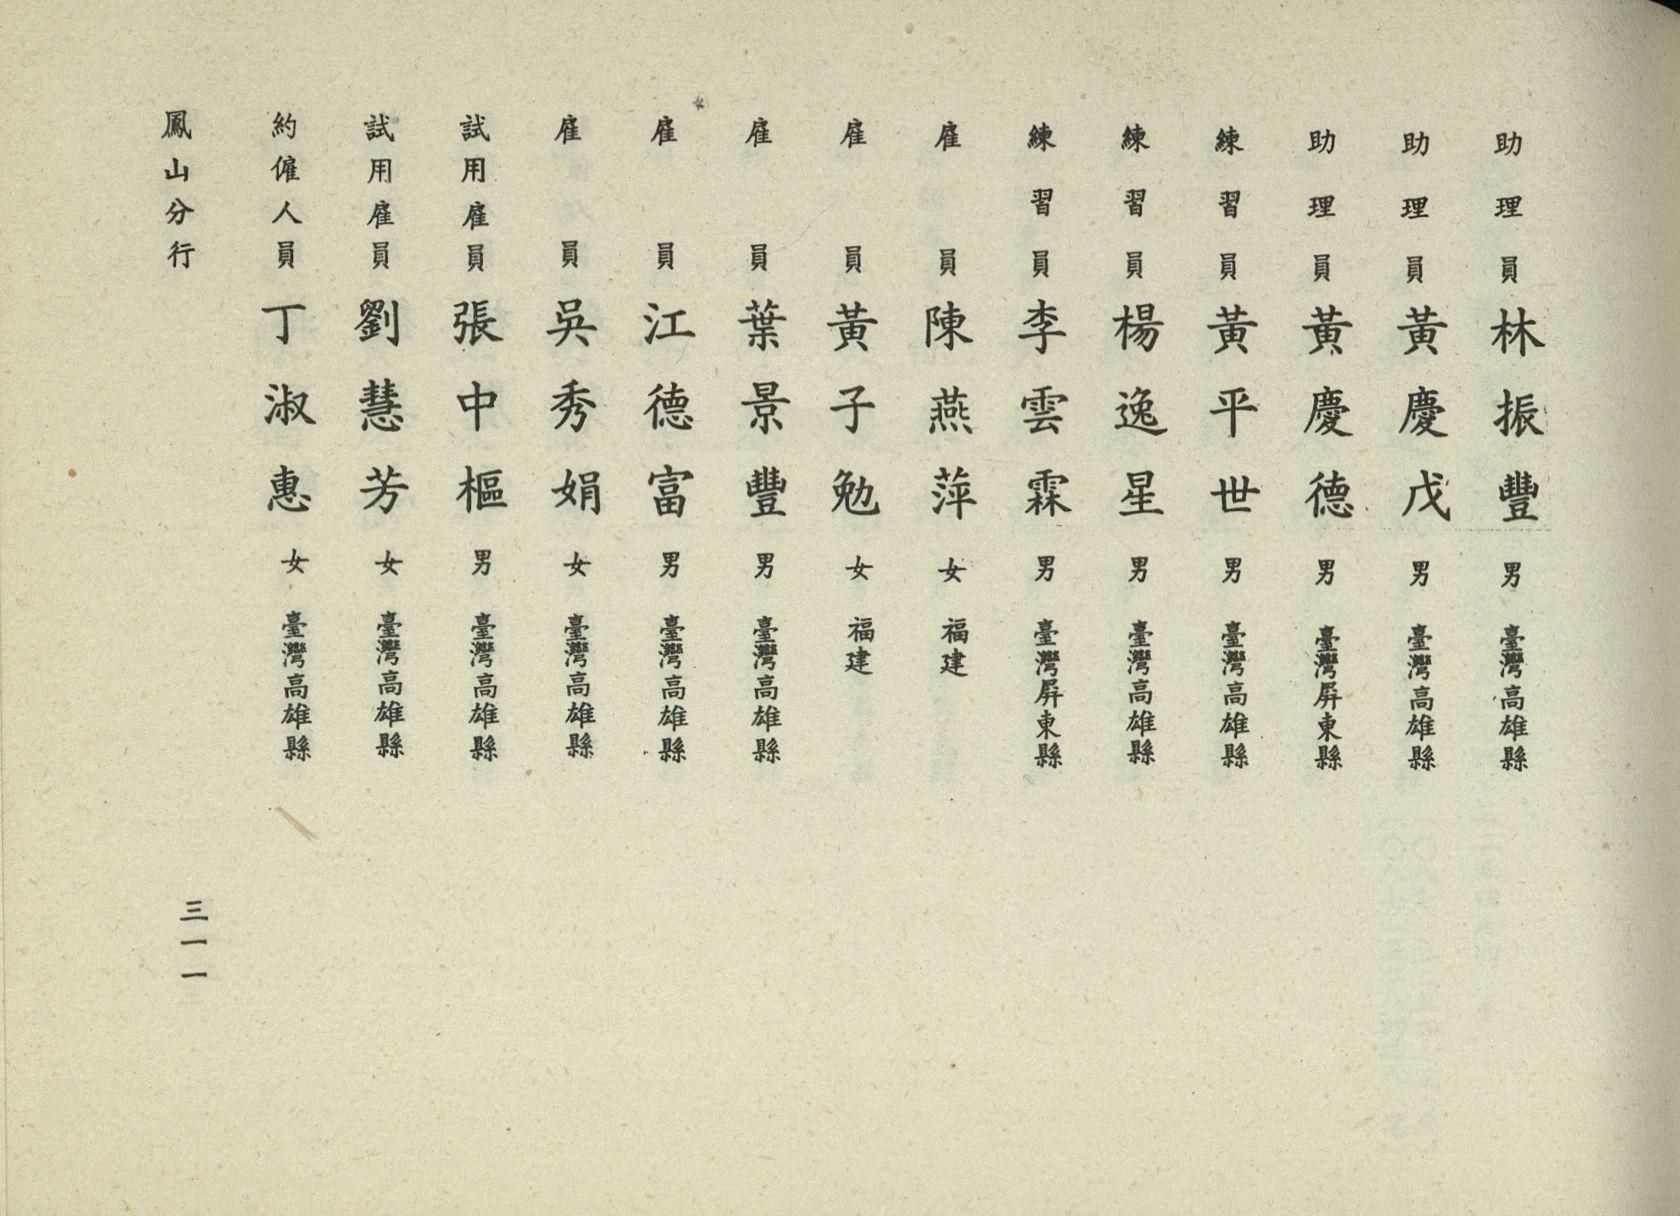 助理員 林振豐 男 臺灣高雄縣
助理員 黃慶戊 男 臺灣高雄縣
助理員 黃慶德 男 臺灣屏東縣
練習員 黃平世 男 臺灣高雄縣
練習員 楊逸星 男 臺灣高雄縣
練習員 李雲霖 男 臺灣屏東縣
雇員 陳燕萍 女 福建
雇員 黃子勉 女 福建
雇員 葉景豐 男 臺灣高雄縣
雇員 江德富 男 臺灣高雄縣
雇員 吳秀娟 女 臺灣高雄縣
試用雇員 張中樞 男 臺灣高雄縣
試用雇員 劉慧芳 女 臺灣高雄縣
約僱人員 丁淑惠 女 臺灣高雄縣
鳳山分行
三一一